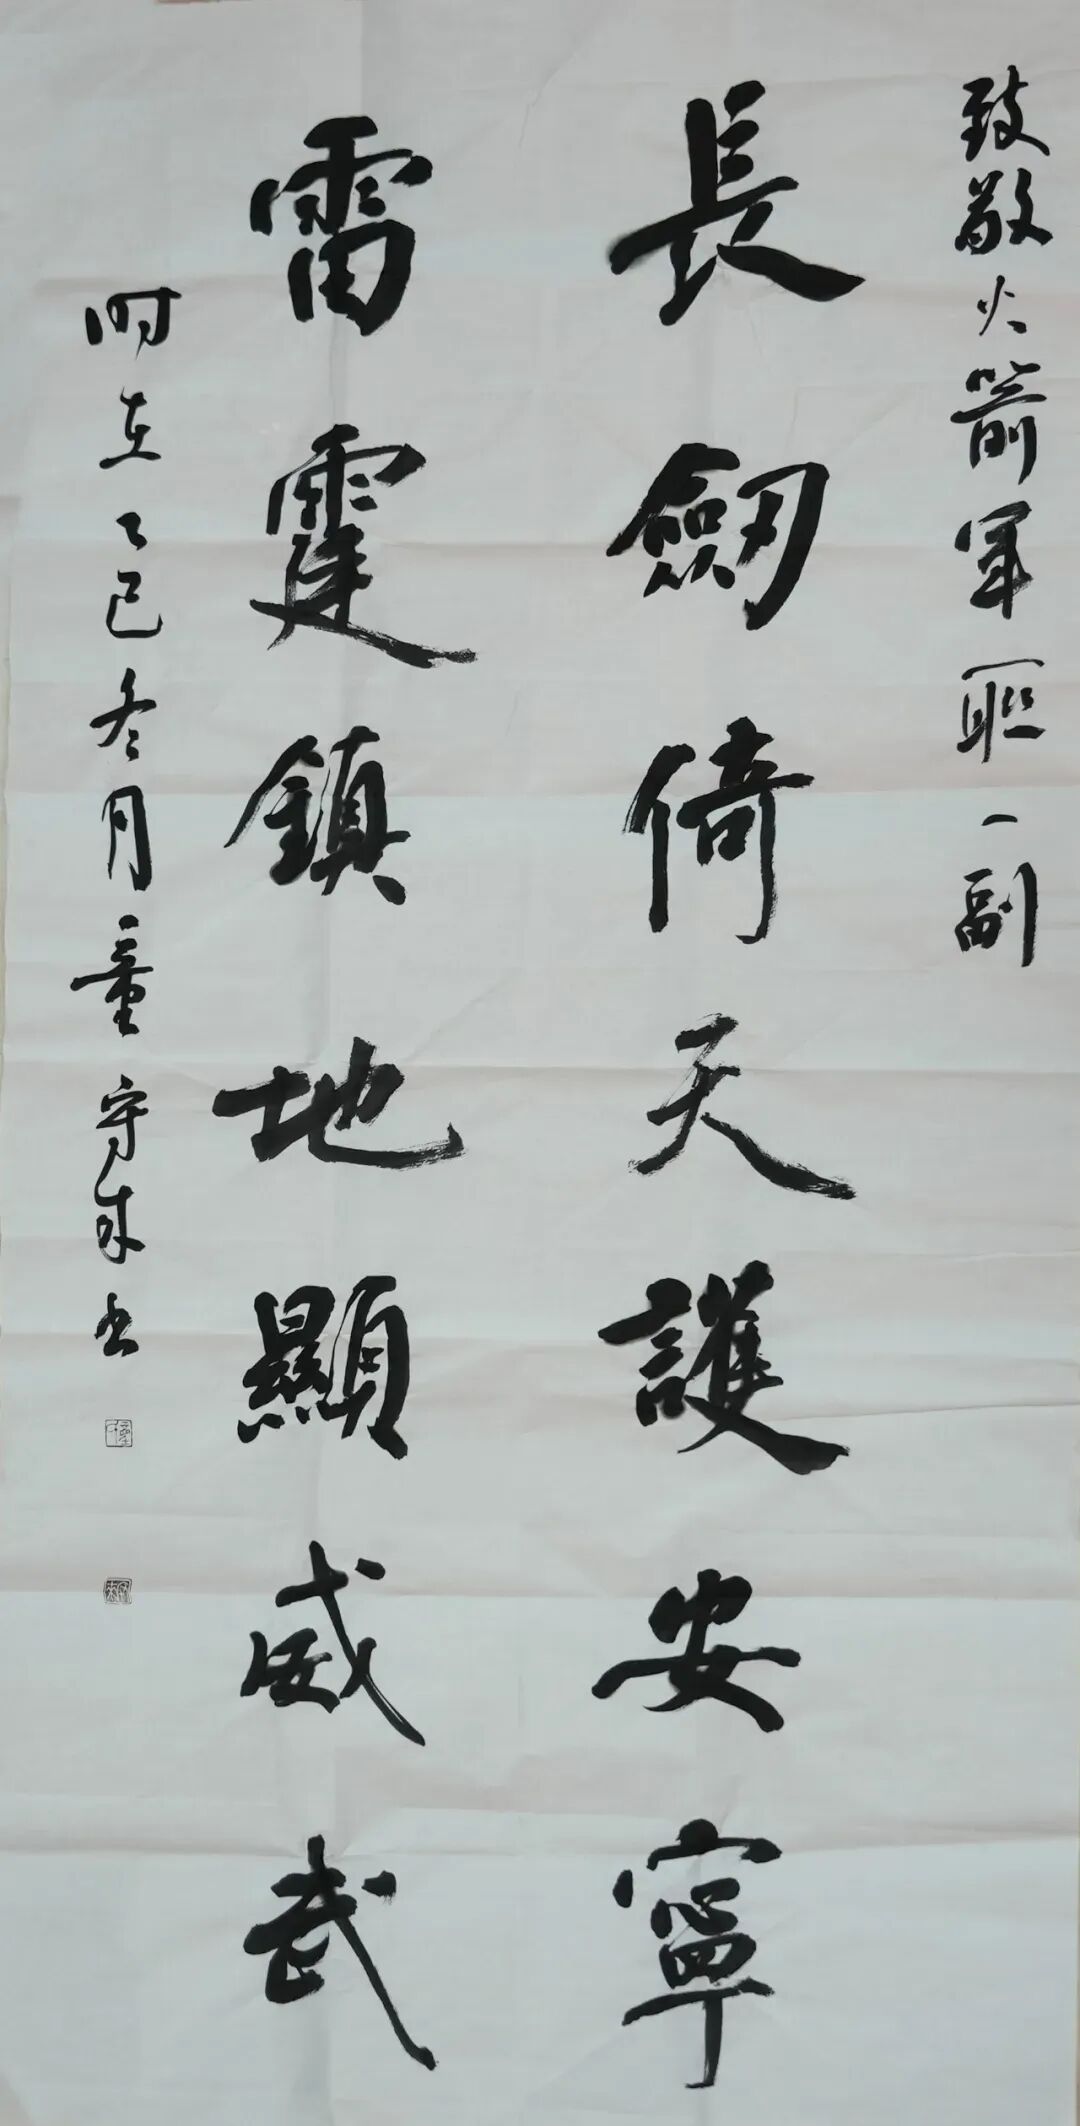 致敬火箭軍联一副
長劔倚天護安寧
雷霆鎮地顯威武
时在乙巳冬月童守成书